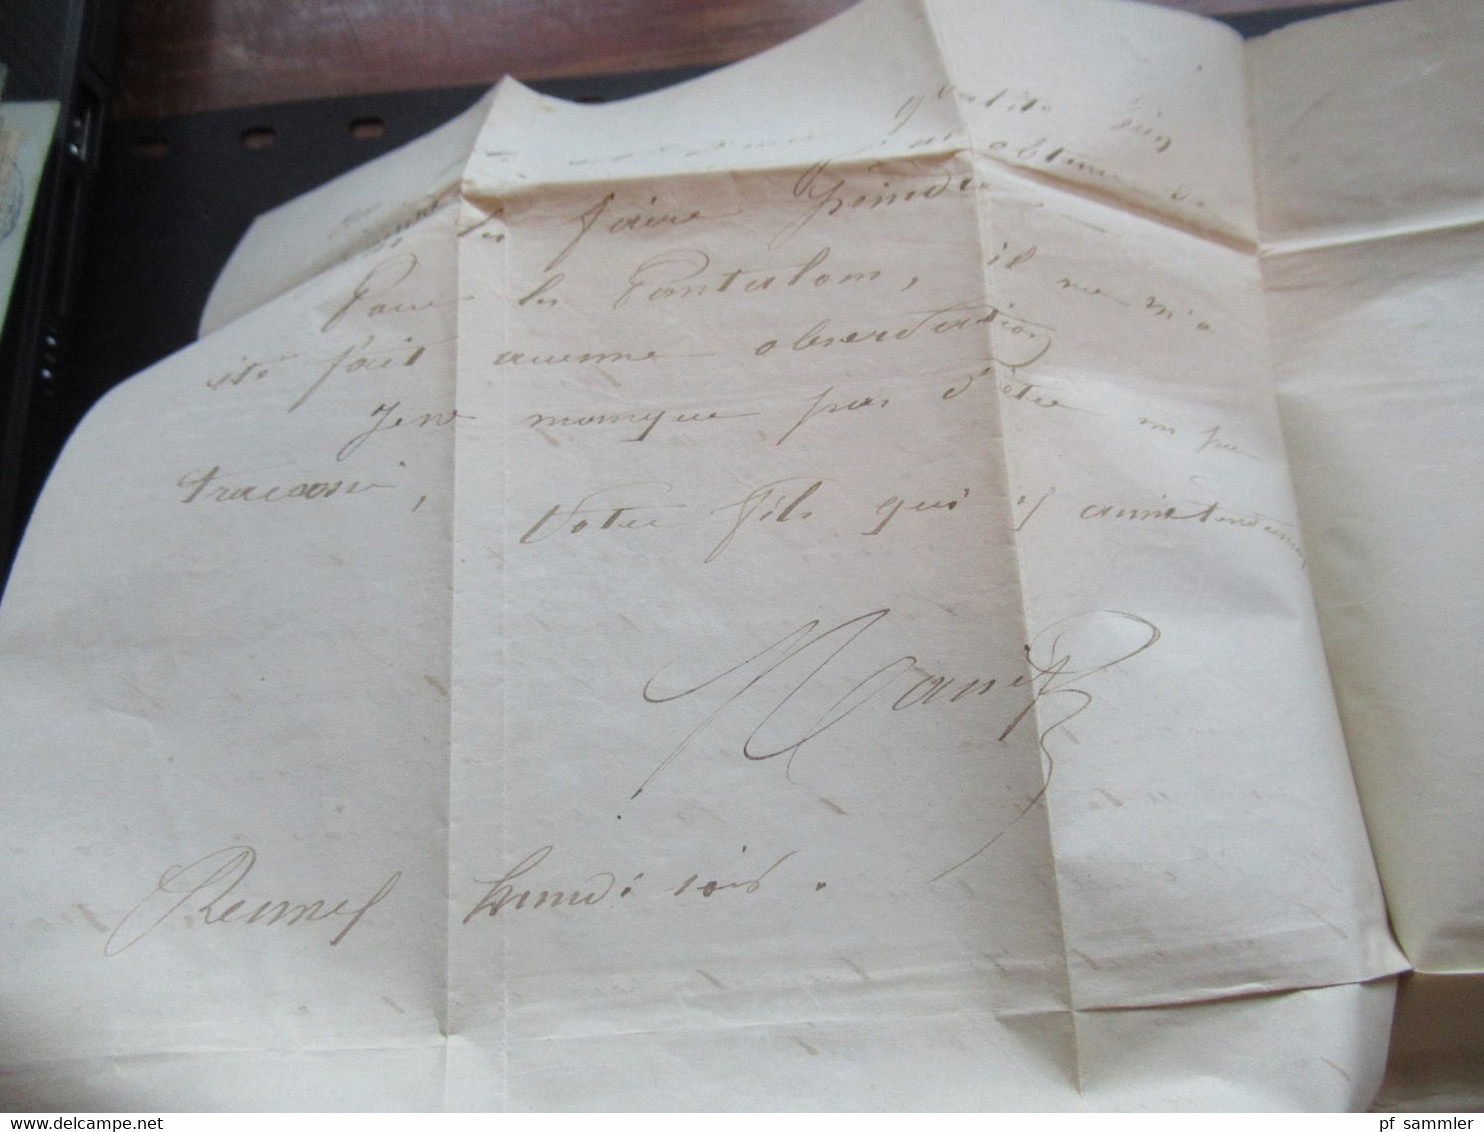 qualité bien
j'ai obtenu de
les faire peindre
Pour les Pantalons, il ne m'a
été fait aucune observation
Je ne manque pas d'être un peu
tracassé,
Votre fils qui
Rennes Lundi soir.
pf_sammler